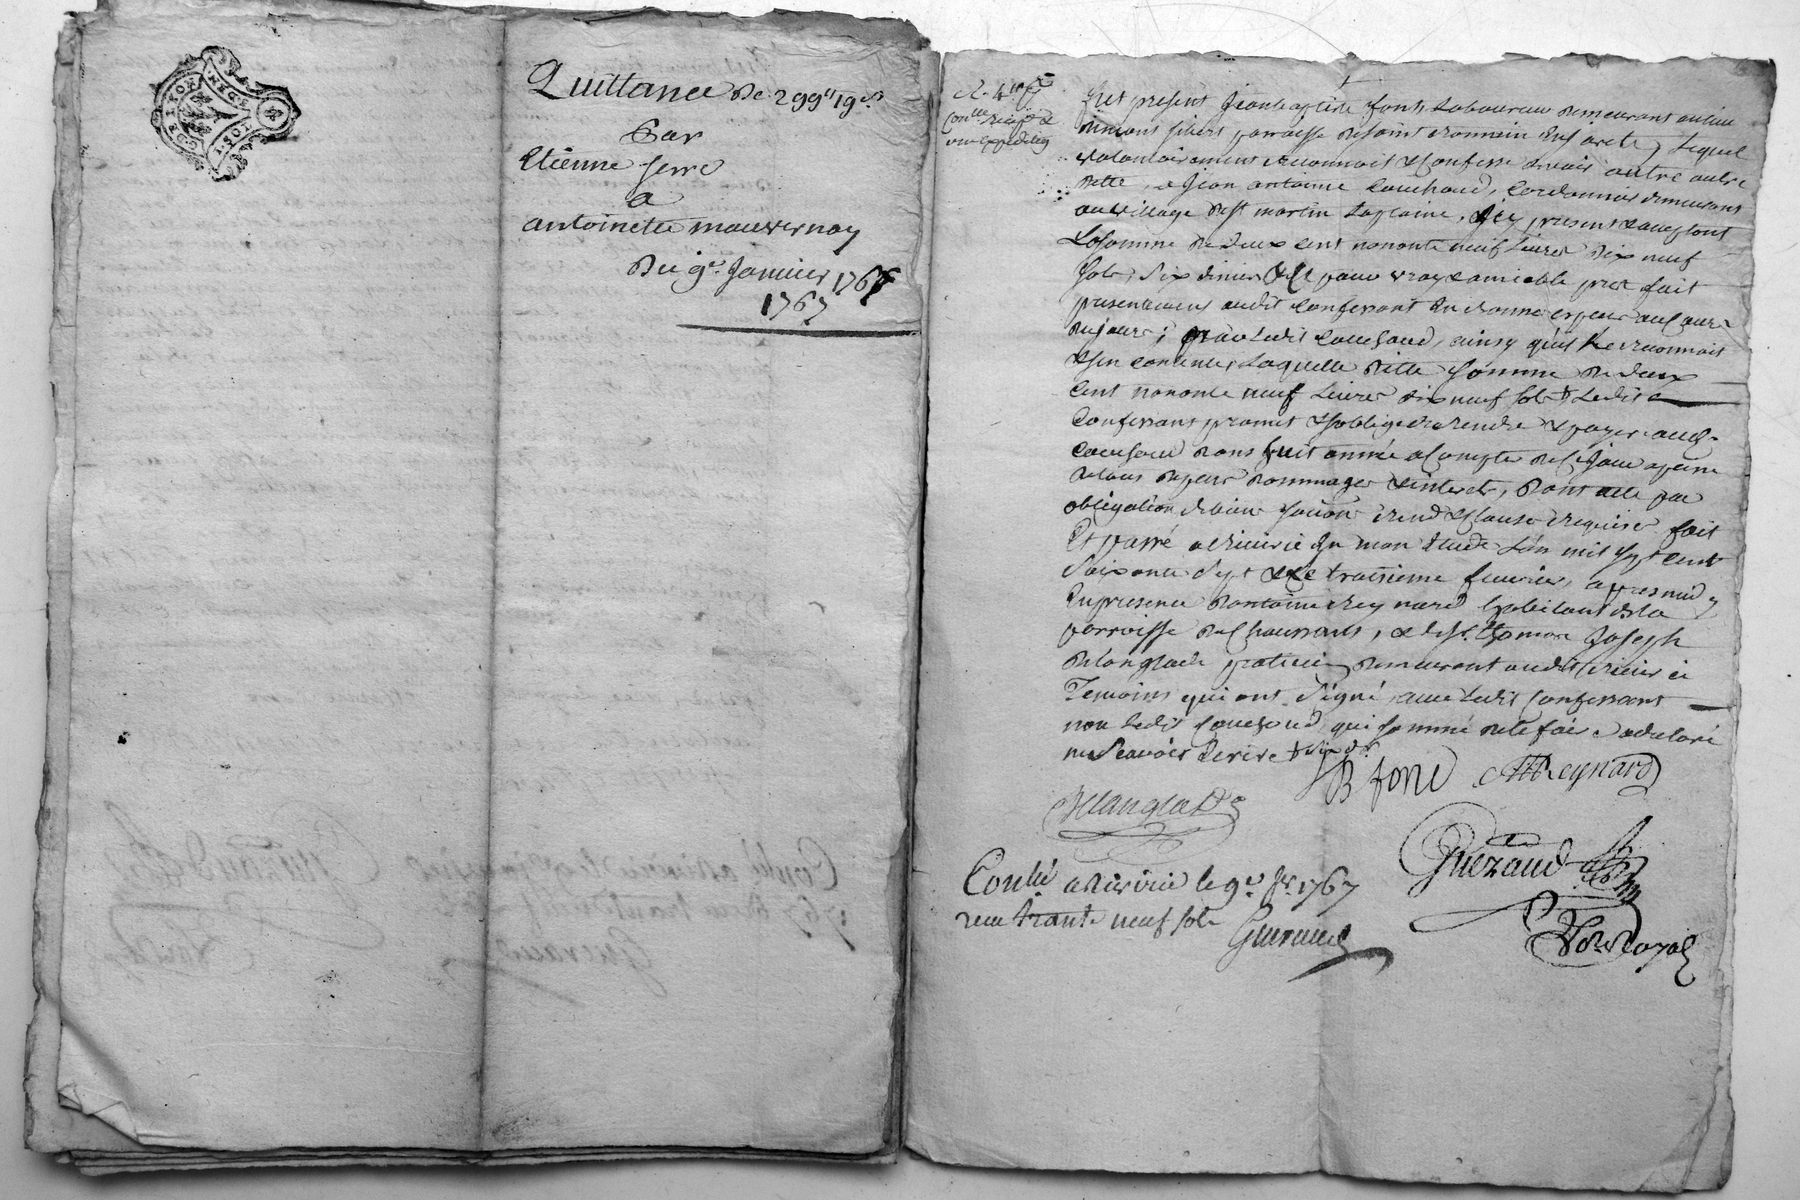 GEN. DE LYON
Quittance de 299ll 19s
Par
Etienne serre
a
antoinette mauvernay
Du 9e Janvier 1767
1767
Con.lle
une expedition
fut present Jean baptiste font Laboureur demeurant au lieu
parroisse de saint romain en jarest, Lequel
volontairement reconnoit & confesse devoir outre autre
dette, a Jean antoine couchoud, cordonnier demeurant
au village de st martin Laplaine, icy present & acceptant
La somme de deux cent nonante neuf Livres dix neuf
sols, six deniers & ce pour vray & amiable prest fait
presentement audit confessant en bonne espece au cours
du jour; par Ledit couchoud, ainsy qu'il Le reconnoit
& s'en contente, Laquelle ditte somme de deux
cent nonante neuf Livres dix neuf sols + Ledit
Confessant promet & s'oblige de rendre & payer aud.
couchoud dans huit année a Compter de ce Jour a peine
de tous depens dommages & interets, Dont acte par
obligation de biens soumon renon & clauses requises fait
Et passé a riverie En mon Etude L'an mil sept cent
soixante sept & le troisieme fevrier, apres midy
En presence d'antoine reynard habitant de la
parroisse de Chaussans, & de sr. thomas Joseph
delanglade praticien demeurant audit riverie
Temoins qui ont signé avec Ledit Confessant
non Ledit couchoud qui sommé de le faire a declaré
ne sçavoir Ecrire + six d.
JB font AReynard
Delanglade
Guezaud
Conllé a Riverie le 9e fr. 1767
recu trante neuf sols
Guezaud